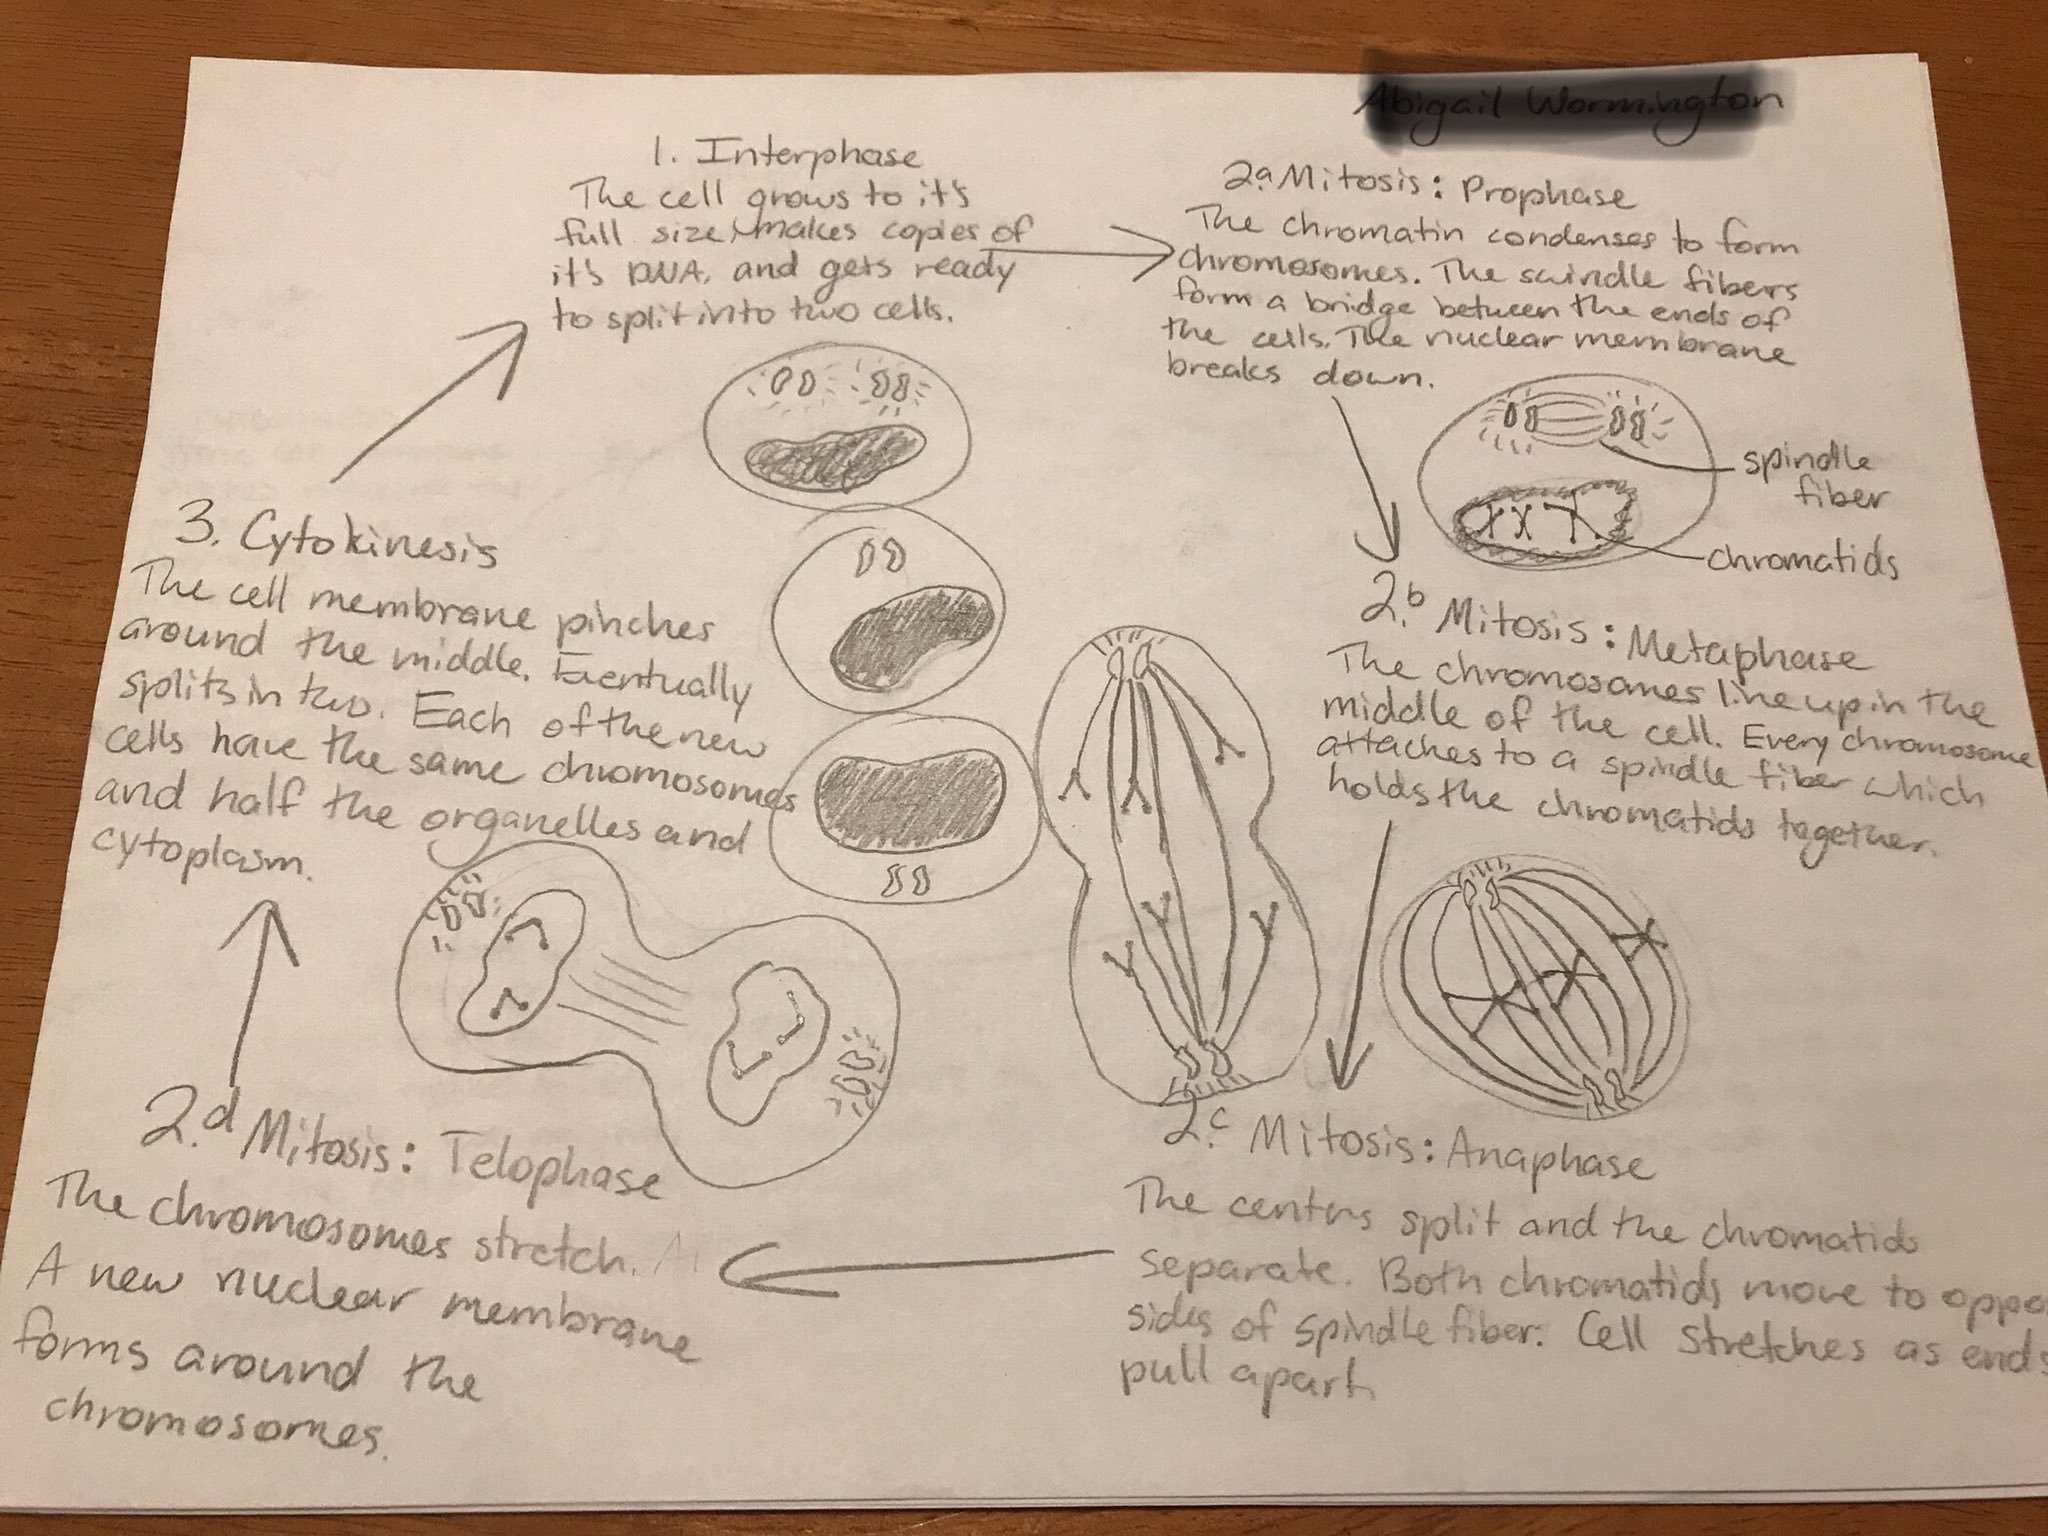 Abigail Wormington
1. Interphase
The cell grows to it's
full size, makes copies of
it's DNA, and gets ready
to split into two cells.
2.a Mitosis: Prophase
The chromatin condenses to form
chromosomes. The spindle fibers
form a bridge between the ends of
the cells. The nuclear membrane
breaks down.
spindle
fiber
chromatids
2.b Mitosis: Metaphase
The chromosomes line up in the
middle of the cell. Every chromosome
attaches to a spindle fiber which
holds the chromatids together.
2.c Mitosis: Anaphase
The centers split and the chromatids
separate. Both chromatids move to oppo
sides of spindle fiber. Cell stretches as ends
pull apart.
2.d Mitosis: Telophase
The chromosomes stretch.
A new nuclear membrane
forms around the
chromosomes.
3. Cytokinesis
The cell membrane pinches
around the middle. Eventually
splits in two. Each of the new
cells have the same chromosomes
and half the organelles and
cytoplasm.